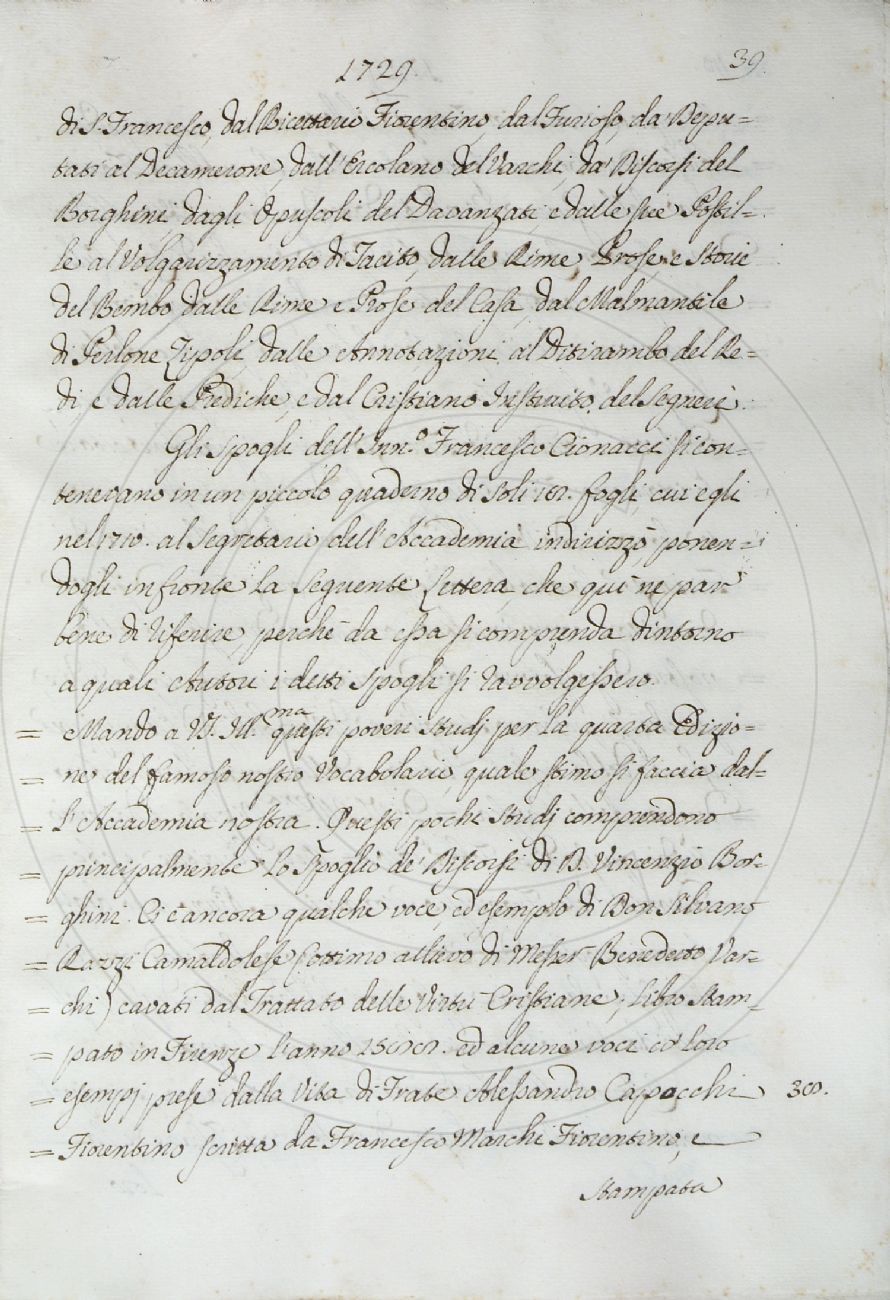 1729.
39.
di S. Francesco, dal Ricettario Fiorentino, dal Furioso, da' Depu=
tati al Decamerone, dall'Ercolano del Varchi, da' Discorsi del
Borghini, dagli Opuscoli del Davanzati, e dalle sue Postil=
le al Volgarizzamento di Tacito, dalle Rime, Prose, e Storie
del Bembo dalle Rime e Prose del Casa, dal Malmantile
di Perlone Zipoli, dalle Annotazioni al Ditirambo del Re=
di e dalle Prediche, e dal Cristiano Instruito del Segneri.
Gli spogli dell'Inn.o Francesco Cionacci si con=
tenevano in un piccolo quaderno di soli fogli, cui egli
nel 1710. al Segretario dell'Accademia indirizzò, ponen=
dogli in fronte la seguente Lettera, che quì ne par
bene di riferire, perchè da essa si comprenda dintorno
a quali Autori i detti spogli si ravvolgessero.
= Mando a VS. Ill.ma questi poveri Studj per la quarta Edizio=
= ne del famoso nostro Vocabolario, quale stimo si faccia dal=
= l'Accademia nostra. Questi pochi Studj comprendono
= principalmente lo Spoglio de' Discorsi di D. Vincenzio Bor=
= ghini. Ci è ancora qualche voce, ed esemplo di Don Silvano
= Razzi Camaldolese (ottimo allievo di Messer Benedetto Var=
= chi) cavati dal Trattato delle Virtù Cristiane, libro stam=
= pato in Firenze l'anno ed alcune voci co' loro
= esempj prese dalla Vita di Frate Alessandro Capocchi
300.
= Fiorentino scritta da Francesco Marchi Fiorentino, e
Stampata